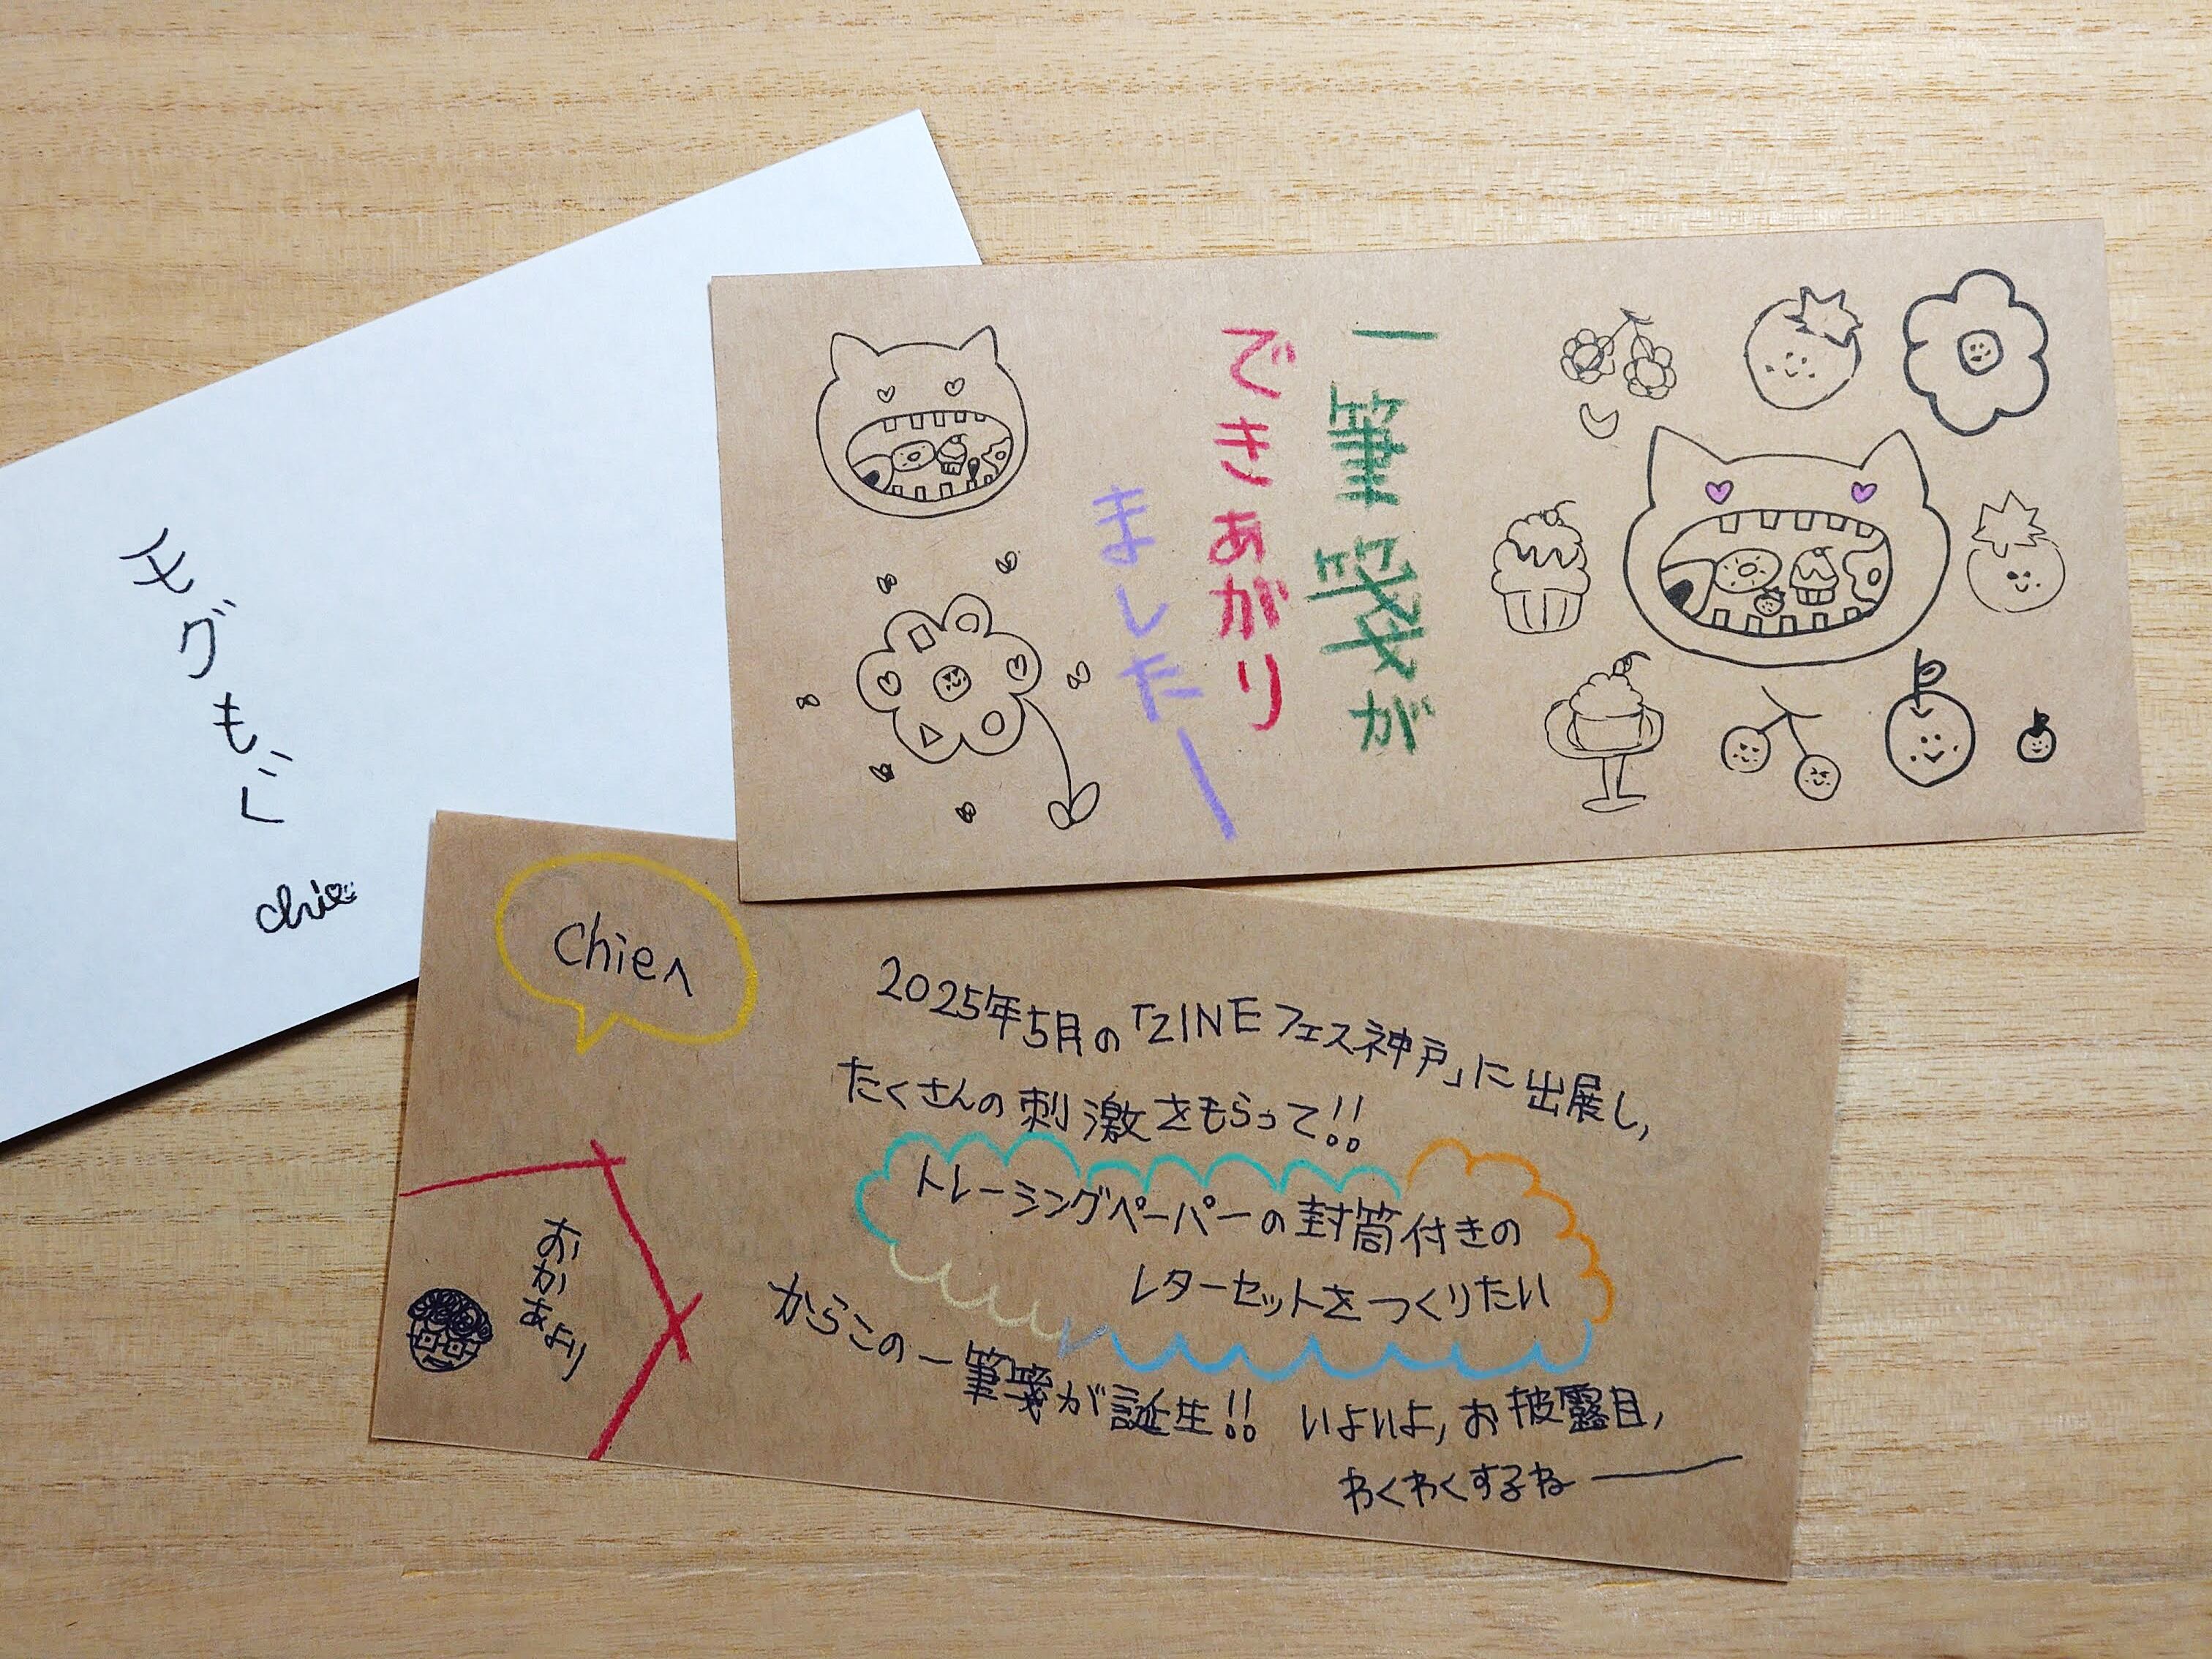 モグもぐ
chie
一筆箋が
できあがり
ましたー
chieへ
2025年5月の「ZINEフェス神戸」に出展し,
たくさんの刺激をもらって!!
トレーシングペーパーの封筒付きの
レターセットをつくりたい
からこの一筆箋が誕生!! いよいよ,お披露目,
わくわくするねー
おかあより